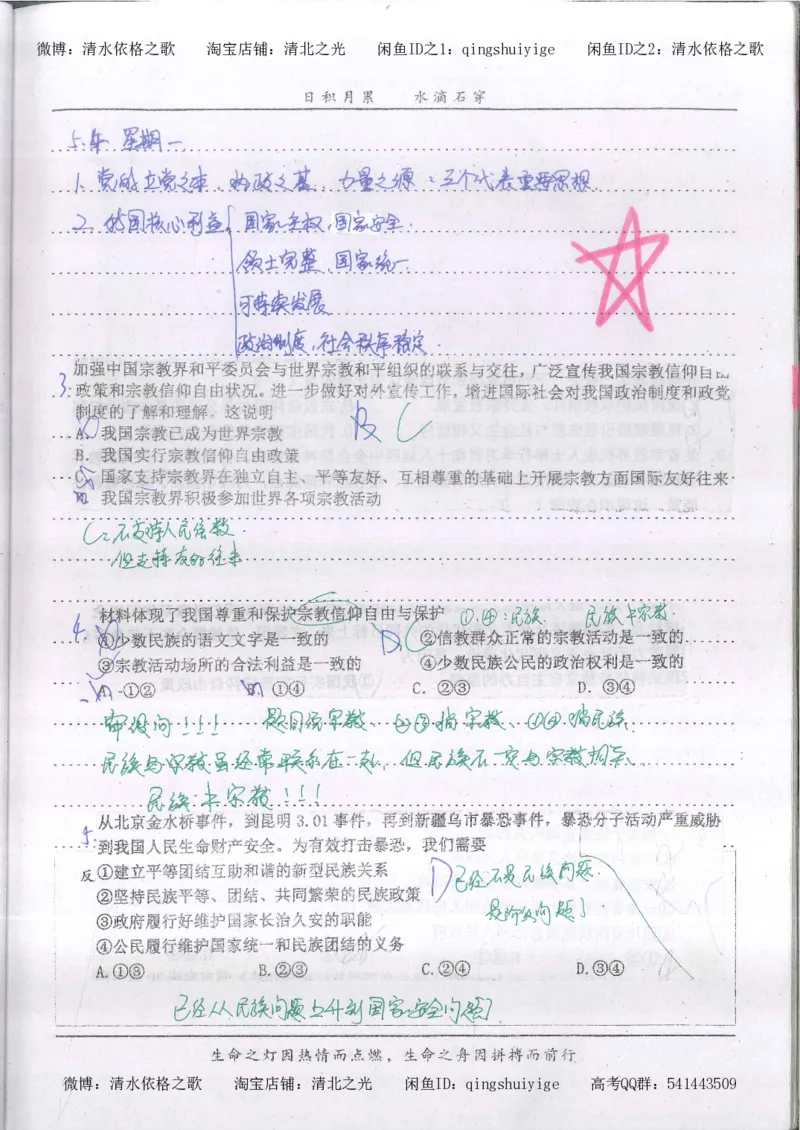 微博：清水依格之歌 淘宝店铺：清北之光 闲鱼ID之1：qingshuiyige 闲鱼ID之2：清水依格之歌
日积月累 水滴石穿
5.4 星期一
1. 党的立党之本、执政之基、力量之源：三个代表重要思想.
2. 我国核心利益 国家主权,国家安全.
领土完整,国家统一
可持续发展
政治制度,社会秩序稳定.
3. 加强中国宗教界和平委员会与世界宗教和平组织的联系与交往，广泛宣传我国宗教信仰自由
政策和宗教信仰自由状况。进一步做好对外宣传工作，增进国际社会对我国政治制度和政党
制度的了解和理解。这说明
A. 我国宗教已成为世界宗教 B C
B. 我国实行宗教信仰自由政策
C. 国家支持宗教界在独立自主、平等友好、互相尊重的基础上开展宗教方面国际友好往来
D. 我国宗教界积极参加世界各项宗教活动
C：不支持人民信教.
但支持友好往来
4. 材料体现了我国尊重和保护宗教信仰自由与保护 ①.④：民族. 民族≠宗教.
①少数民族的语文文字是一致的 D C ②信教群众正常的宗教活动是一致的
③宗教活动场所的合法利益是一致的 ④少数民族公民的政治权利是一致的
A. ①② B. ①④ C. ②③ D. ③④
审设问！！！ 题目问宗教、②③指宗教、①④指民族.
民族与宗教虽经常联系在一起，但民族不一定与宗教相关、
民族≠宗教！！！
5. 从北京金水桥事件，到昆明 3.01 事件，再到新疆乌市暴恐事件，暴恐分子活动严重威胁
到我国人民生命财产安全。为有效打击暴恐，我们需要
反 ①建立平等团结互助和谐的新型民族关系 D 已经不是民族问题.
②坚持民族平等、团结、共同繁荣的民族政策
是阶级问题了
③政府履行好维护国家长治久安的职能
④公民履行维护国家统一和民族团结的义务
A.①③ B.②③ C.②④ D.③④
已经从民族问题上升到国家安全问题了
生命之灯因热情而点燃，生命之舟因拼搏而前行
微博：清水依格之歌 淘宝店铺：清北之光 闲鱼ID：qingshuiyige 高考QQ群：541443509